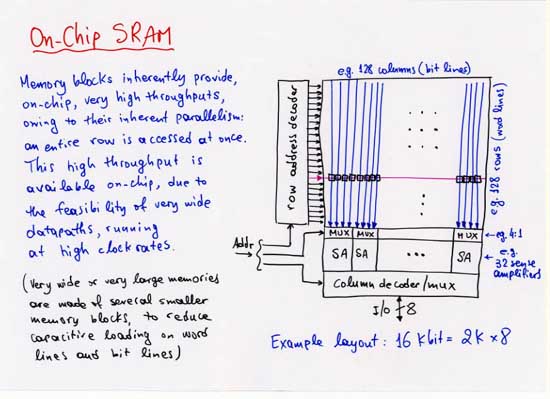 On-Chip SRAM
Memory blocks inherently provide,
on-chip, very high throughputs,
owing to their inherent parallelism:
an entire row is accessed at once.
This high throughput is
available on-chip, due to
the feasibility of very wide
datapaths, running
at high clock rates.
(Very wide or very large memories
are made of several smaller
memory blocks, to reduce
capacitive loading on word
lines and bit lines)
e.g. 128 columns (bit lines)
row address decoder
e.g. 128 rows (word lines)
MUX MUX MUX
←eg. 4:1
Addr
SA SA ••• SA
e.g.
32 sense
amplifiers
Column decoder/mux
I/O 8
Example layout: 16 Kbit = 2K×8